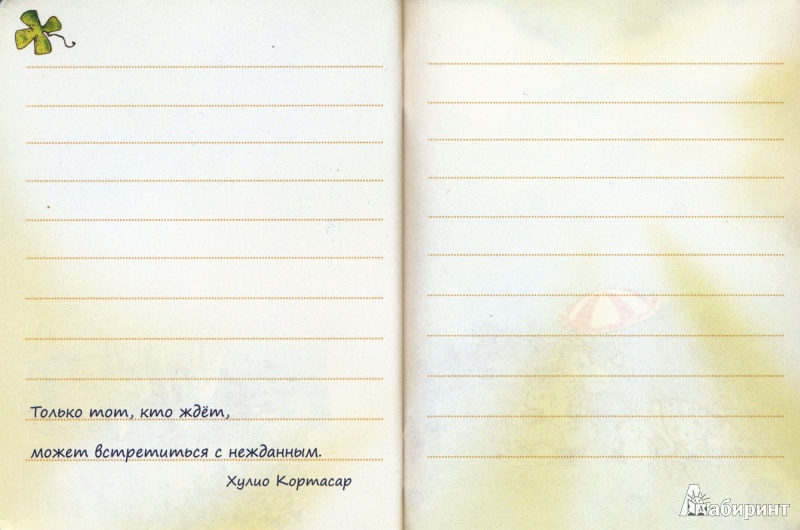 Только тот, кто ждёт,
может встретиться с нежданным.
Хулио Кортасар
Лабиринт